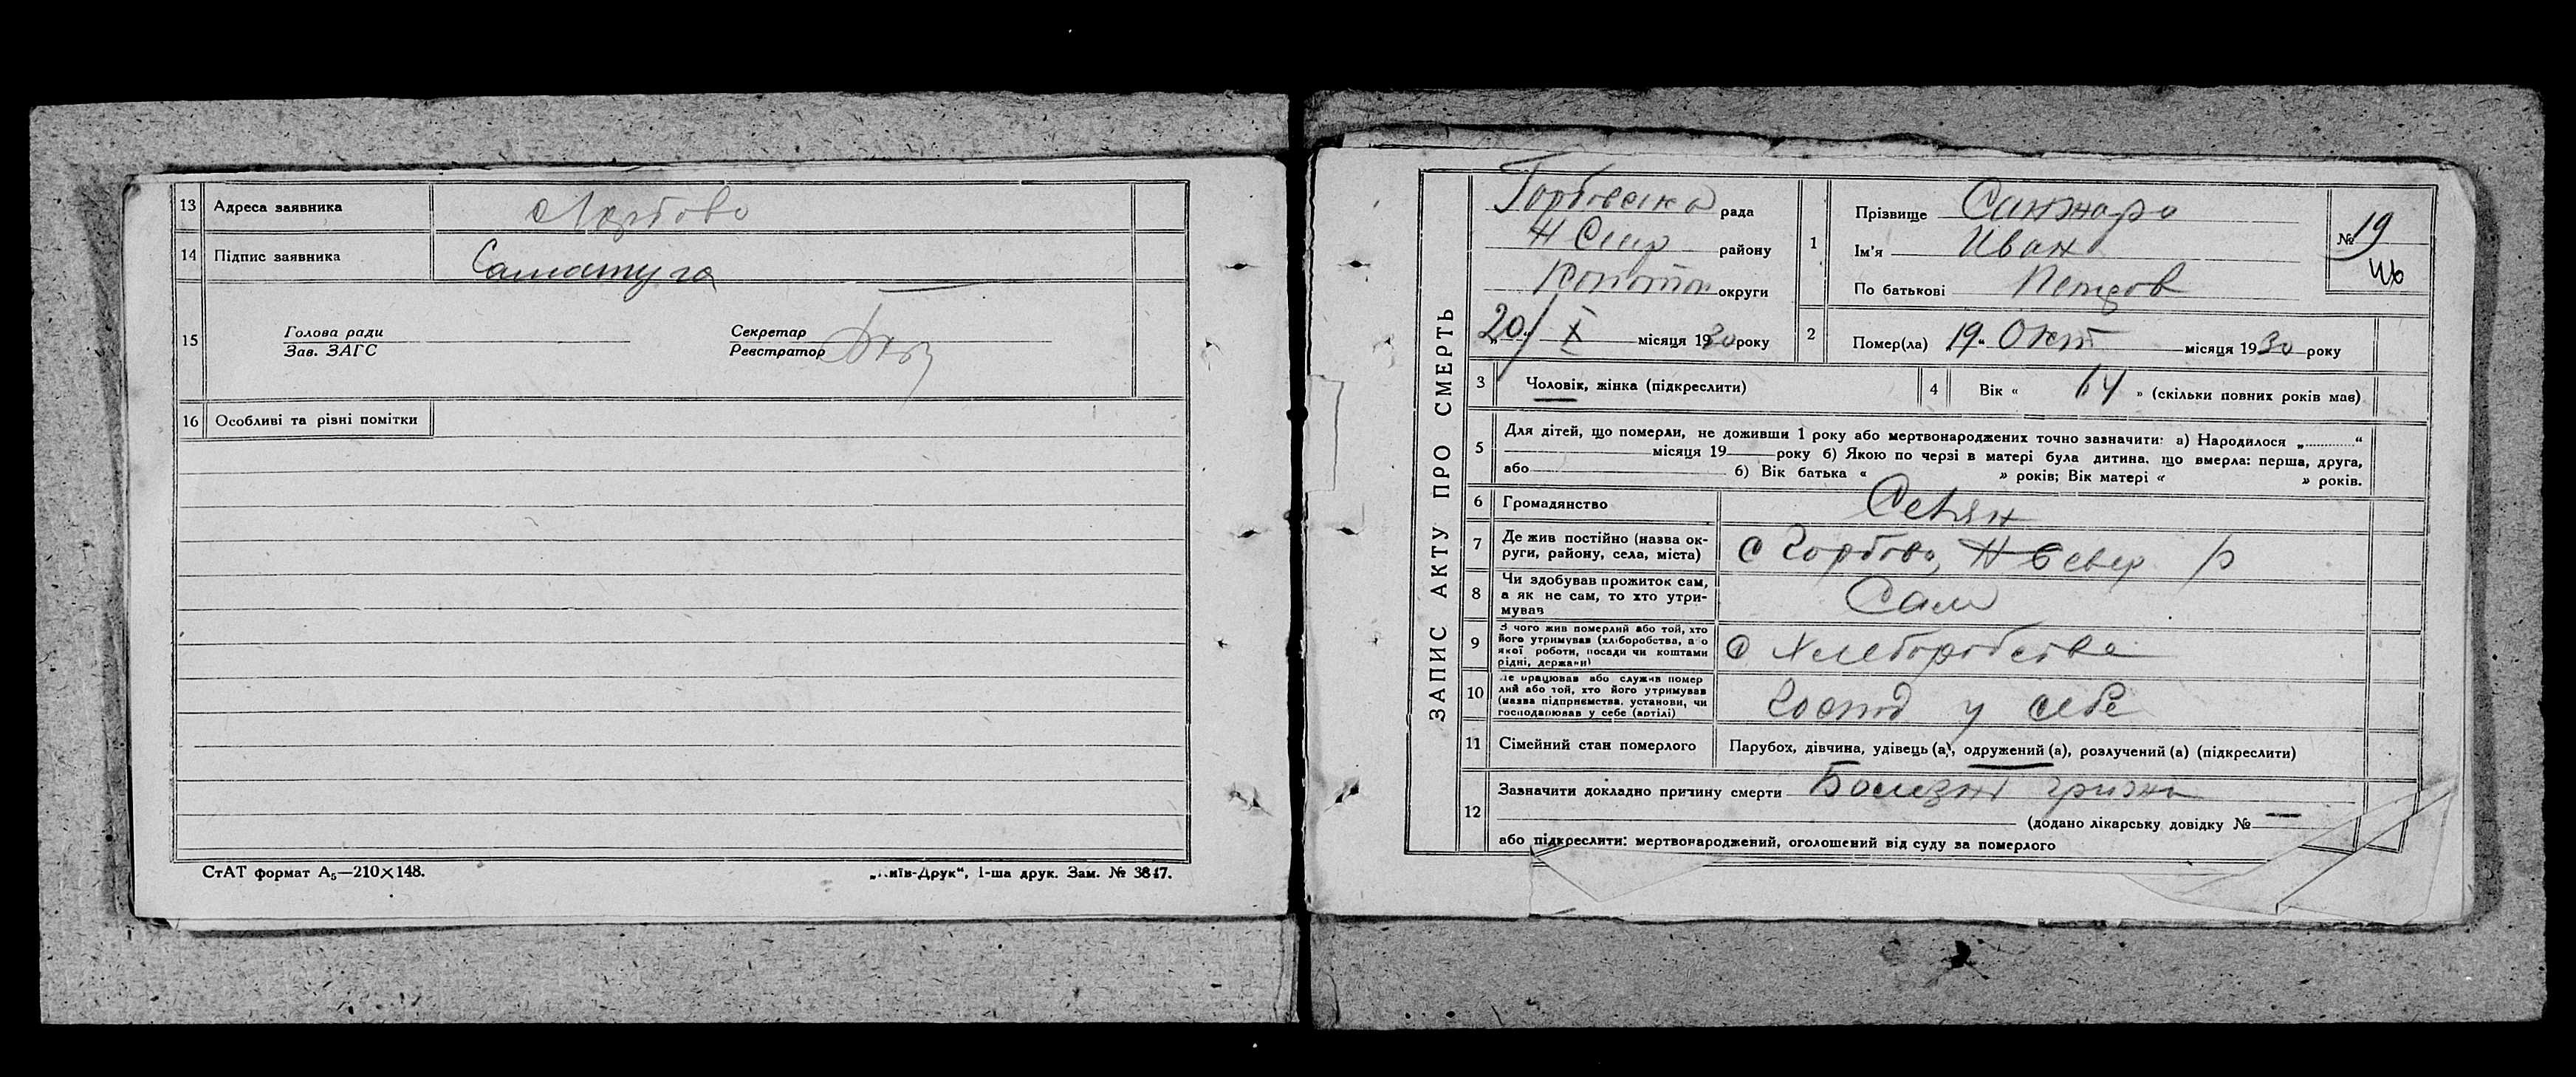 13 Адреса заявника с Горбово
14 Підпис заявника Саматуга
15
Голова ради
Зав. ЗАГС
Секретар
Реєстратор
16 Особливі та різні помітки
СтАТ формат А₅—210×148.
„Київ-Друк“, 1-ша друк. Зам. № 3847.
ЗАПИС АКТУ ПРО СМЕРТЬ
Горбовска рада
Н Сівр району
Конотоп округи
20/ X місяця 1930 року
1 Прізвище Санжаро
Ім'я Иван
По батькові Петров
№ 19
2 Помер(ла) 19 Окт місяця 1930 року
3 Чоловік, жінка (підкреслити)
4 Вік « 64 » (скільки повних років мав)
5 Для дітей, що померли, не доживши 1 року або мертвонароджених точно зазначити: а) Народилося „..........“
місяця 19 року б) Якою по черзі в матері була дитина, що вмерла: перша, друга,
або б) Вік батька « » років; Вік матері « » років.
6 Громадянство Селян
7 Де жив постійно (назва ок-
руги, району, села, міста) с Горбово, Н Север р
8 Чи здобував прожиток сам,
а як не сам, то хто утри-
мував Сам
9 З чого жив померлий або той, хто
його утримував (хліборобства, або
якої роботи, посади чи коштами
рідні, держави) с Хлеборобства
10 Де працював або служив помер
лий або той, хто його утримував
(назва підприємства, установи, чи
господарював у себе (артілі) Господ у себе
11 Сімейний стан померлого Парубох, дівчина, удівець (а), одружений (а), розлучений (а) (підкреслити)
12 Зазначити докладно причину смерти Болизнь грижа
(додано лікарську довідку № —
або підкреслити: мертвонароджений, оголошений від суду за померлого